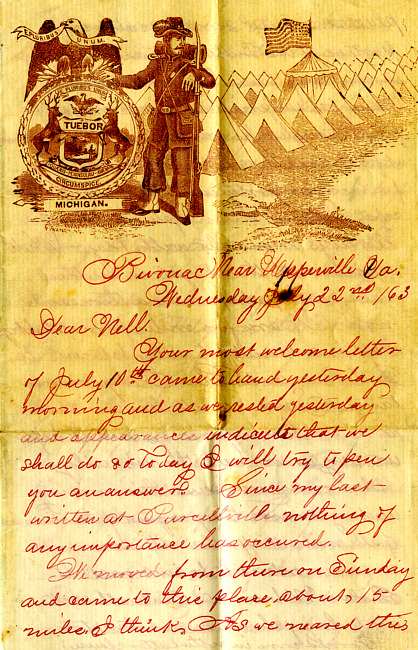 E PLURIBUS UNUM.
E PLURIBUS UNUM
TUEBOR
CIRCUMSPICE
MICHIGAN.
Bivouac Near Upperville Va.
Wednesday July 22nd /63
Dear Nell.
Your most welcome letter
of July 10th came to hand yesterday
morning and as we rested yesterday
and appearances indicate that we
shall do so Today I will try to pen
you an answer. Since my last
written at Purcellville nothing of
any importance has occured.
We moved from there on Sunday
and came to this place about 15
miles I think, As we neared this